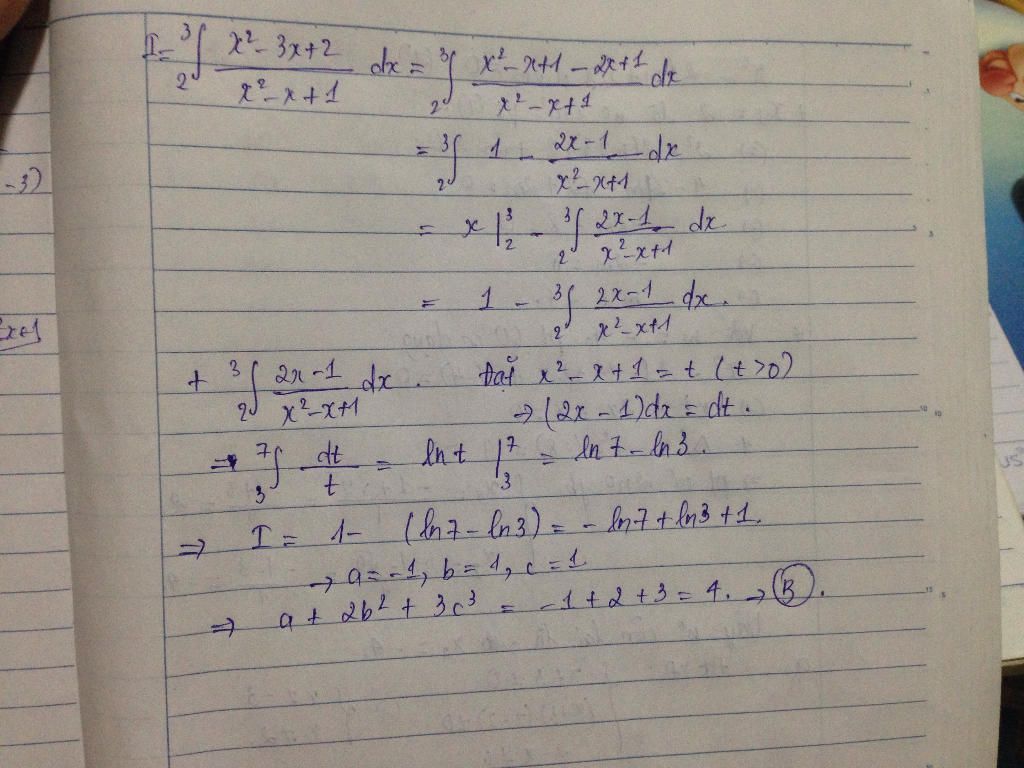 I = ₂³∫ (x² - 3x + 2)/(x² - x + 1) dx = ₂³∫ (x² - x + 1 - 2x + 1)/(x² - x + 1) dx
= ₂³∫ 1 - (2x - 1)/(x² - x + 1) dx
= x |₂³ - ₂³∫ (2x - 1)/(x² - x + 1) dx
= 1 - ₂³∫ (2x - 1)/(x² - x + 1) dx.
+ ₂³∫ (2x - 1)/(x² - x + 1) dx. Đặt x² - x + 1 = t (t > 0)
→ (2x - 1)dx = dt.
→ ₃⁷∫ dt/t = ln t |₃⁷ = ln7 - ln3.
⇒ I = 1 - (ln7 - ln3) = - ln7 + ln3 + 1.
→ a = -1, b = 1, c = 1
⇒ a + 2b² + 3c³ = -1 + 2 + 3 = 4. → B.
-3)